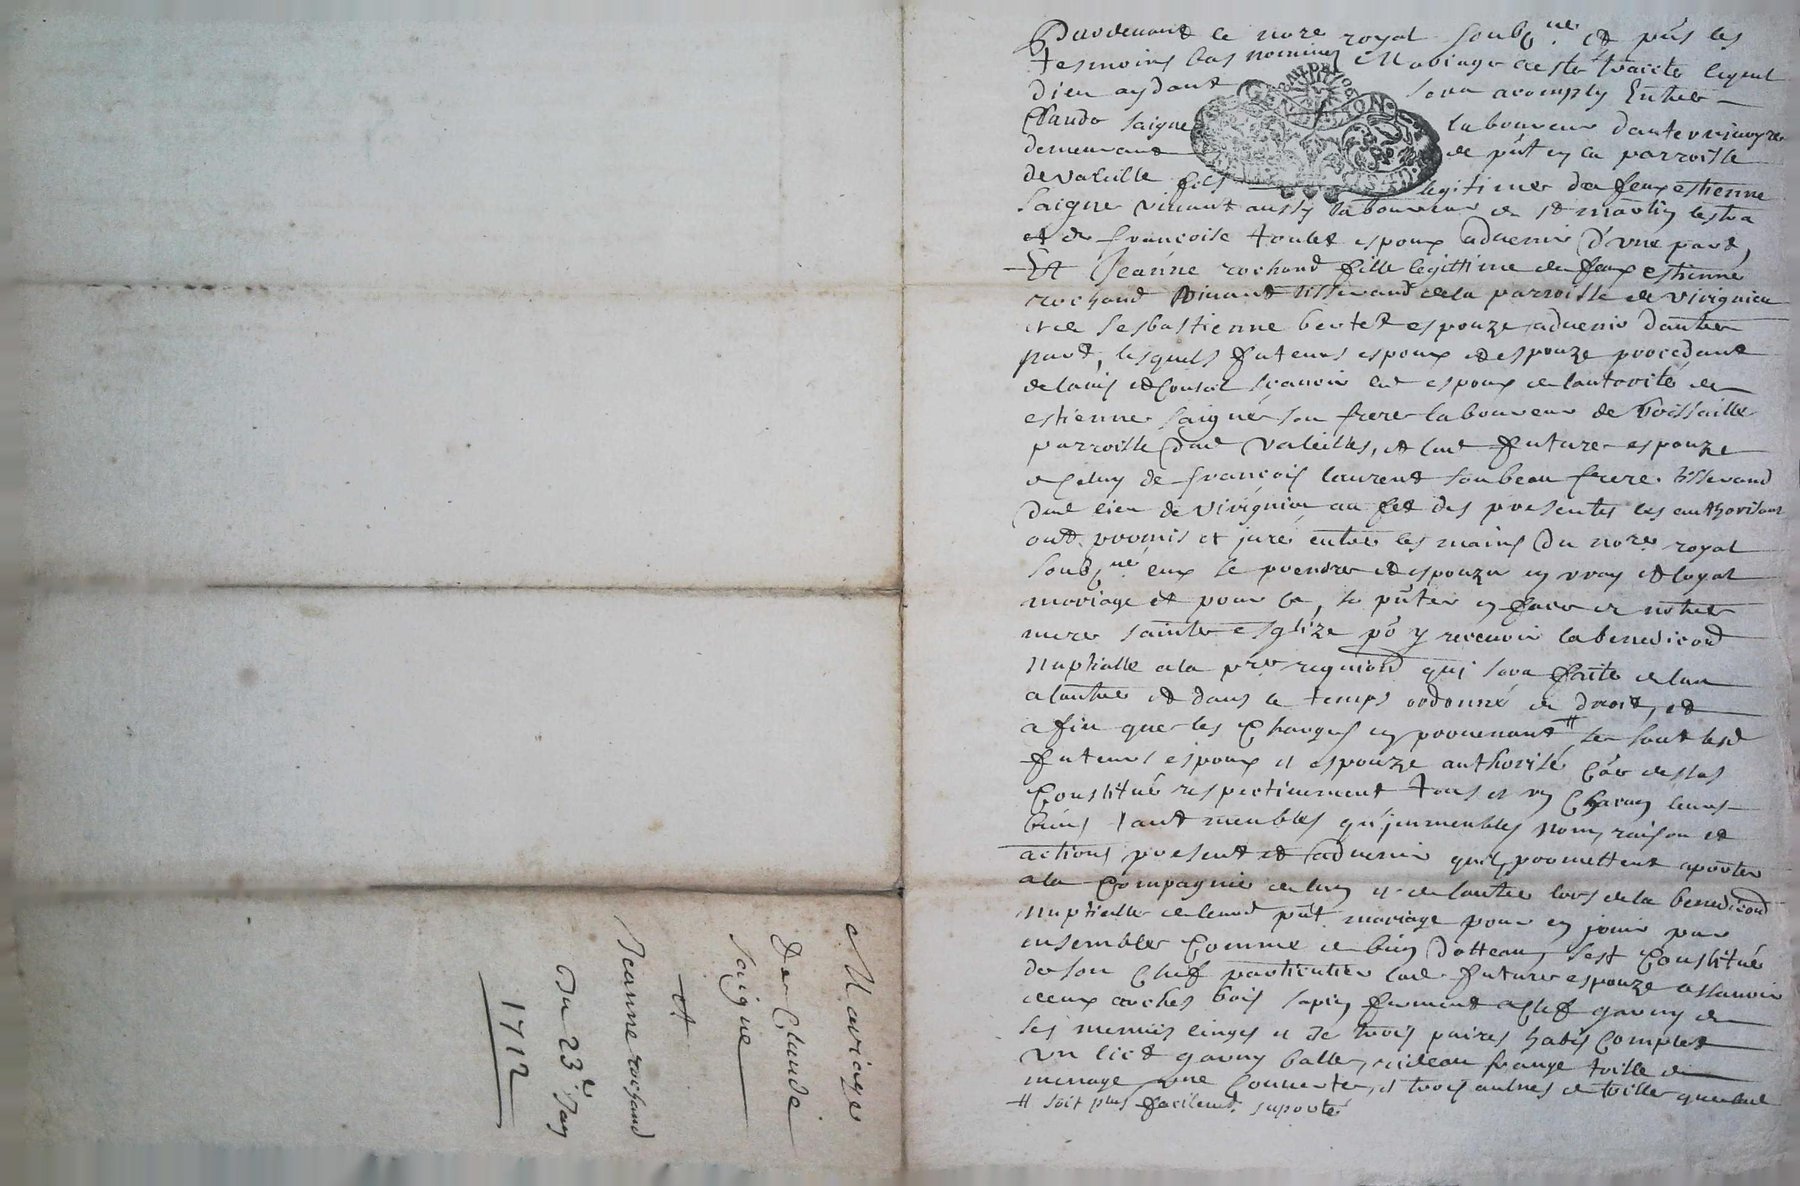 Pardevant le nore royal soubs.né et pnts les
tesmoins bas nommés Mariage a esté traicté lequel
Dieu aydant sera acomply Entre
Claude saigne laboureur d'auteurieuyre
demeurant de pnt en la parroisse
de valeille fils legitime de feu estienne
saigne vivant aussy laboureur de st martin lestra
et de françoise toulet espoux advenir d'une part,
Et Jeanne rochand fille legittime de feu estienne
rochand vivant tisserand de la parroisse de virignieu
et de sesbastienne bertet espouze advenir d'autre
part, lesquels futeurs espoux et espouze procedant
de lavis et conseil sçavoir led espoux de lautorité de
estienne saigne son frere laboureur de boissaille
parroisse dud valeilles, et lad future espouze
de celuy de françois laurent son beau frere tisserand
dud lieu de virignieu au fet des presentes les authorisant
ont promis et juré entre les mains du nore royal
soubs.né eux se prendre et espouzer en vray et loyal
mariage et pour ce, se pnter en face de nostre
mere sainte esglize po y recevoir la benediond
nuptialle a la pre requiond qui sera faite de lun
a lautre et dans le temps ordonné de droit, et
afin que les charges en provenant # se sont lesd
futeurs espoux et espouze authorisé co.e dessus
Constitué respectivement tous et un chacun leurs
biens tant meubles qu'jmmeubles noms, raison et
actions present et advenir quils promettent aporter
a la compagnie de lun et de lautre lors de la benediond
nuptialle de leurd pnt mariage pour en jouir par
ensembles Comme de bien dotteau, sest Constitué
de son chef particulier lad future espouze assavoir
deux arches bois sapin fermant a clef garny de
ses menus linges et de trois paires habis complet
un lict garny balle, rideau frange toille de
menage, une couverte, et trois aulnes de toille
# soit plus facilemt suporté
Mariage
De Claude
saigne
et
Jeanne rochand
Du 23e Jan
1712